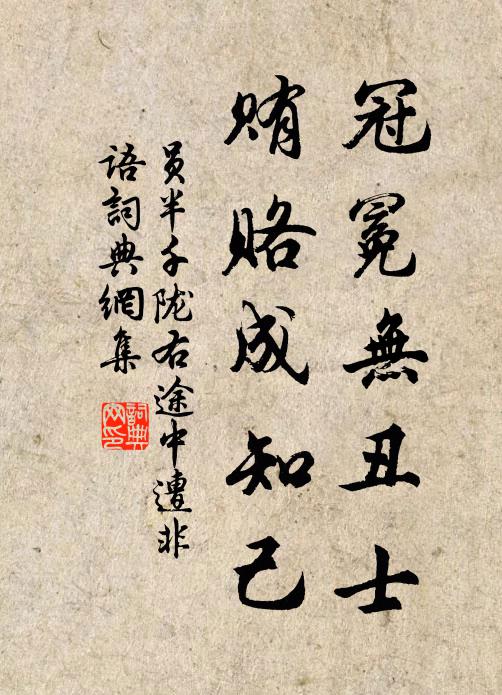 冠冕無丑士
賄賂成知己
员半千陇右途中遭非
语詞典網集
詞典网印